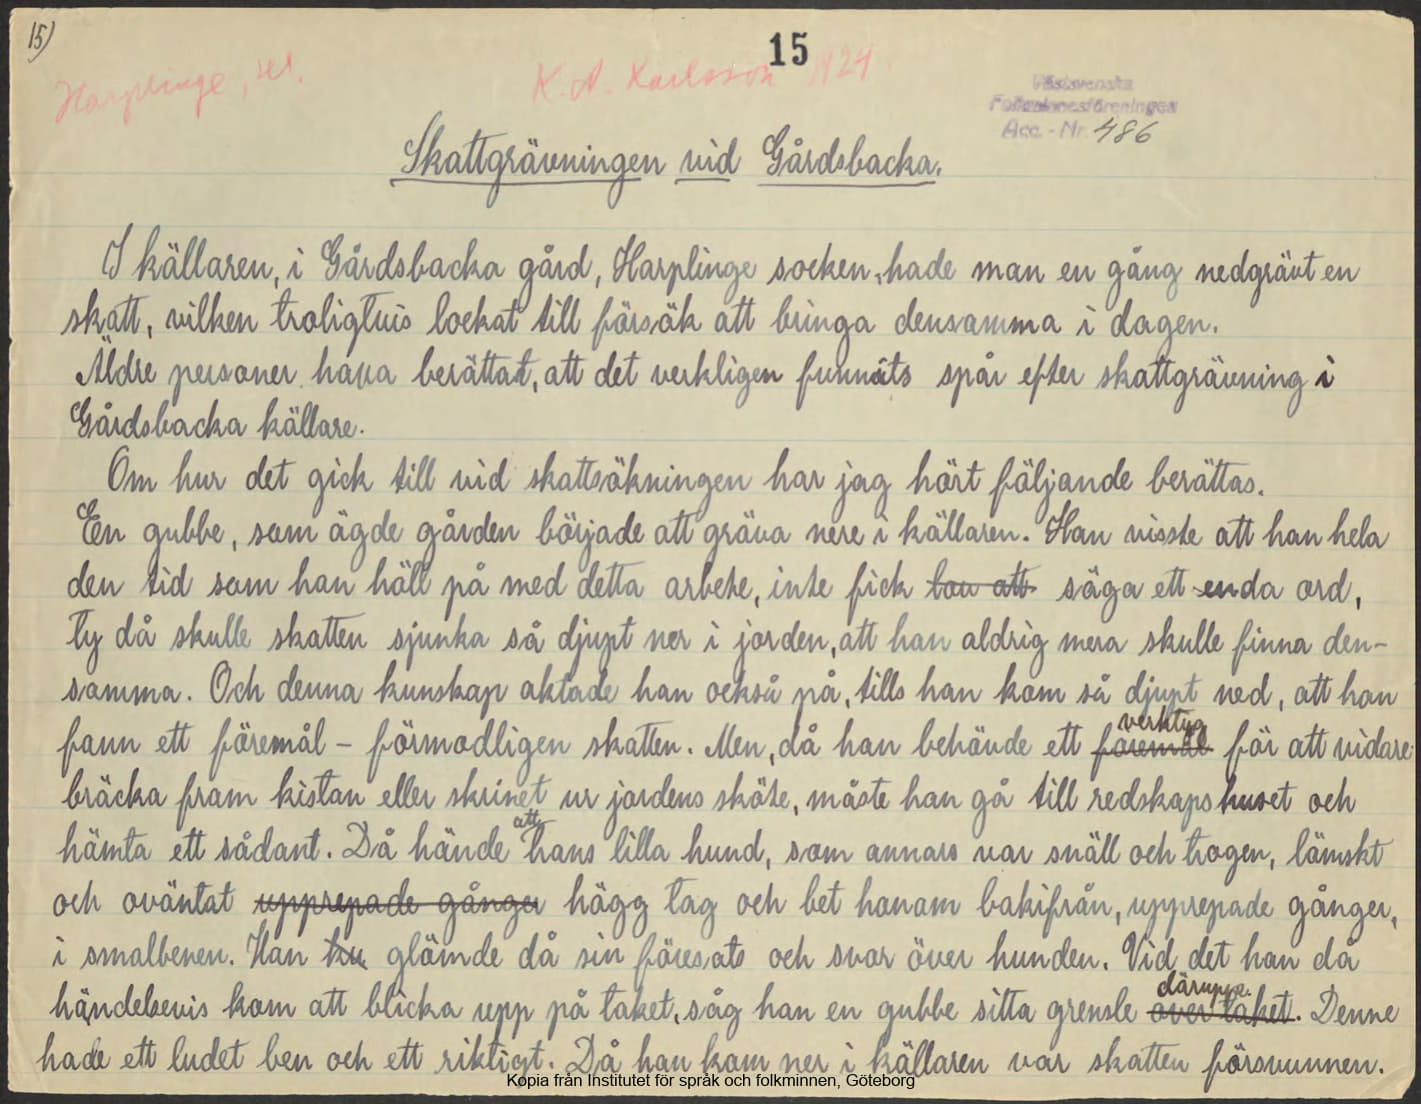 15)
15
Harplinge, sn.
K. A. Karlsson 1924.
Västsvenska
Folkminnesföreningen
Acc. - Nr. 486
Skattgrävningen vid Gårdsbacka.
I källaren, i Gårdsbacka gård, Harplinge socken, hade man en gång nedgrävt en
skatt, vilken troligtvis lockat till försök att bringa densamma i dagen.
Äldre personer hava berättat, att det verkligen funnits spår efter skattgrävning i
Gårdsbacka källare.
Om hur det gick till vid skattsökningen har jag hört följande berättas.
En gubbe, som ägde gården började att gräva nere i källaren. Han visste att han hela
den tid som han höll på med detta arbete, inte fick lov att säga ett enda ord,
ty då skulle skatten sjunka så djupt ner i jorden, att han aldrig mera skulle finna den-
samma. Och denna kunskap aktade han också på, tills han kom så djupt ned, att han
verktyg
fann ett föremål - förmodligen skatten. Men, då han behövde ett föremål för att vidare
bräcka fram kistan eller skrinet ur jordens sköte, måste han gå till redskapshuset och
att
hämta ett sådant. Då hände hans lilla hund, som annars var snäll och trogen, lömskt
och oväntat upprepade gånger högg tag och bet honom bakifrån, upprepade gånger,
i smalbenen. Han glömde då sin föresats och svor över hunden. Vid det han då
däruppe.
händelsevis kom att blicka upp på taket, såg han en gubbe sitta grensle över taket. Denne
hade ett ludet ben och ett riktigt. Då han kom ner i källaren var skatten försvunnen.
Kopia från Institutet för språk och folkminnen, Göteborg